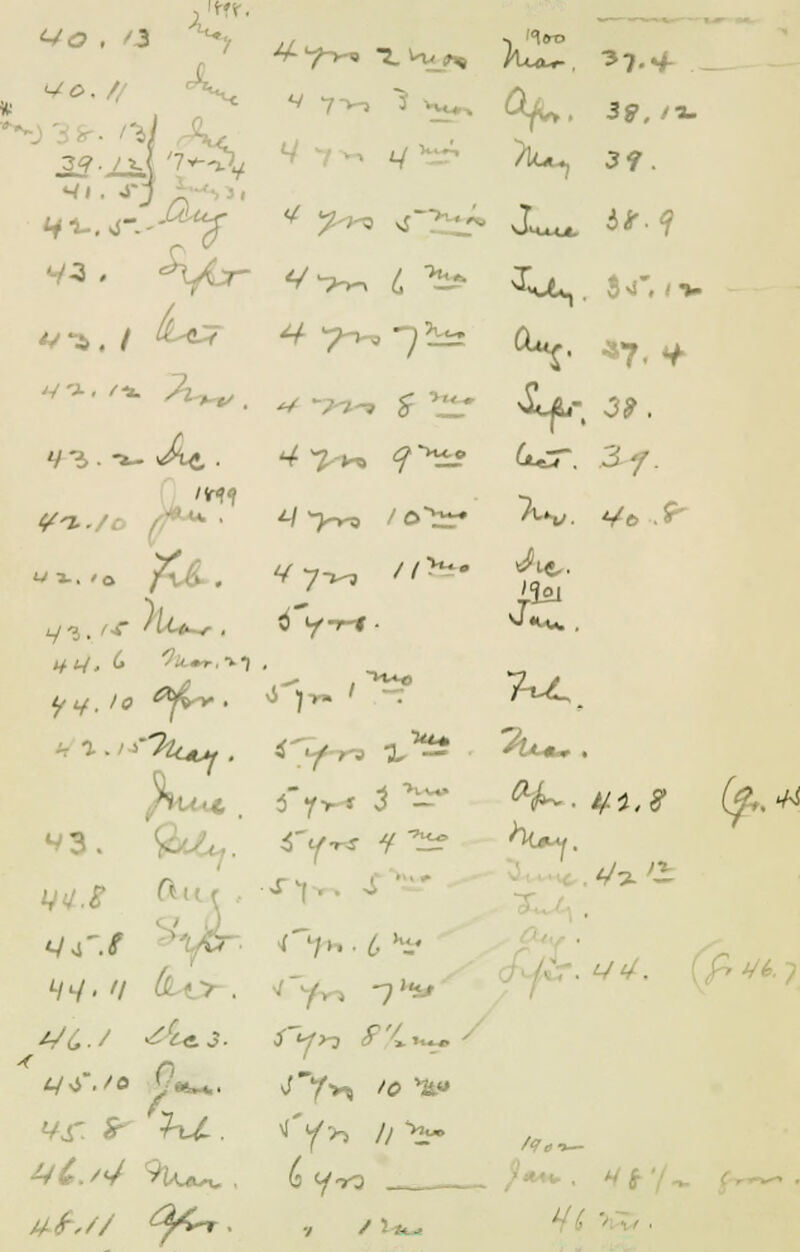 1898.
40.13 May 4 yrs 2 mos 1900 Mar. 37.4
40.11 June 4 yrs 3 mos. Apr. 38.12
38.13 4 yrs 4 mos May 39.
39.12
41.5 July 31
42.5. Aug 4 yrs 5 mos June 38.9
43. Sept 4 yrs 6 mos July. 35.12
43.1 Oct 4 yrs 7 mos Aug. 37.4
42.12 Nov. 4 yrs 8 mos Sept. 38.
43.2 Dec. 4 yrs 9 mos Oct. 39.
1899
42.10 Jan. 4 yrs 10 mos Nov. 40.8
42.10 Feb. 4 yrs 11 mos Dec.
1901
43.15 Mar. 5 yrs. Jan.
44.6 Mar. 29.
44.10 Apr. 5 yrs 1 mo Feb.
42.15 May. 5 yrs 2 mos. Mar.
June. 5 yrs 3 mos Apr. 42.8
43. July. 5 yrs 4 mos May.
44.8 Aug. 5 yrs. 5 mos June. 42 12
July.
45.8 Sept. 5 yrs. 6 mos Aug.
44.11 Oct. 5 yrs 7 mos Sept. 44. 46.
46.1 Dec 3. 5 yrs 8½ mos
45.10 Jan. 5 yrs 10 mos
45.8 Feb. 5 yrs 11 mos
1902
46.14 Mar. 6 yrs Jan. 48½
48.11 Apr. " 1 mo. 46